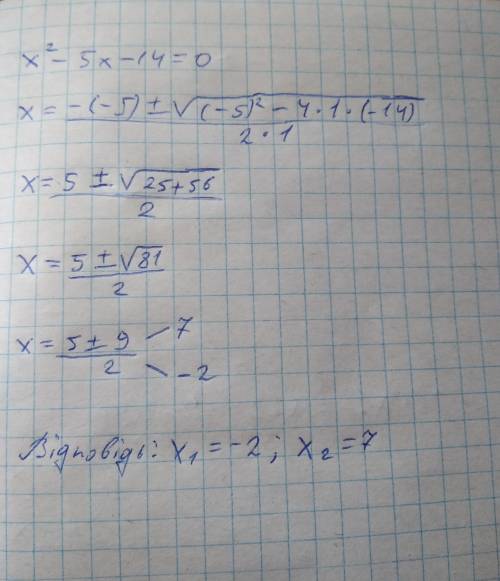 x² - 5x - 14 = 0
x = -(-5) ± √(-5)² - 4 · 1 · (-14) / 2 · 1
x = 5 ± √25 + 56 / 2
x = 5 ± √81 / 2
x = 5 ± 9 / 2 7 -2
Відповідь: x₁ = -2 ; x₂ = 7